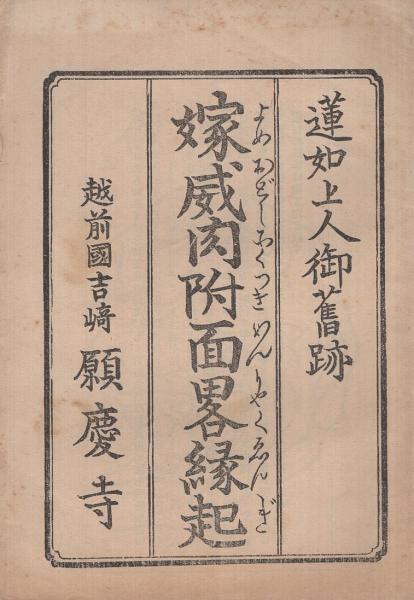 蓮如上人御舊跡
よめおどしにくつきめんりやくゑんぎ
嫁威肉附面畧縁起
越前國吉﨑 願慶寺